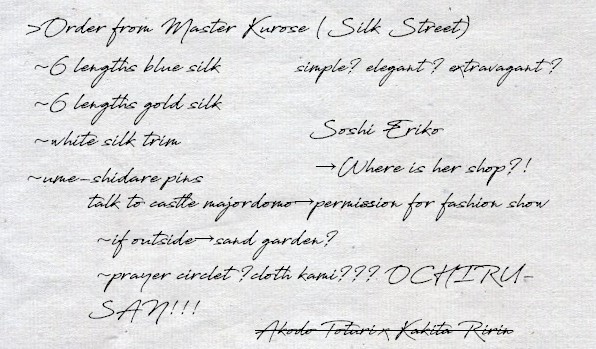 >Order from Master Kurose (Silk Street)
~6 lengths blue silk
simple? elegant? extravagant?
~6 lengths gold silk
~white silk trim
Soshi Eriko
→Where is her shop?!
~ume-shidare pins
talk to castle majordomo→permission for fashion show
~if outside→sand garden?
~prayer circlet ?cloth kami??? OCHIRU-
SAN!!!
Akodo Toturi x Kakita Ririn